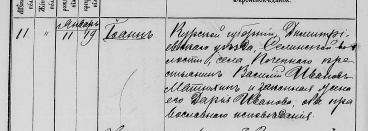 Январь
11 " 11 19 Іоаннъ
Курской губерніи, Димитрі-
евскаго уѣзда, Селинской во-
лости, села Коченаго кре-
стьянинъ Василій Ивановъ
и законная жена
его Дарія Иванова, оба пра-
вославнаго исповѣданія.